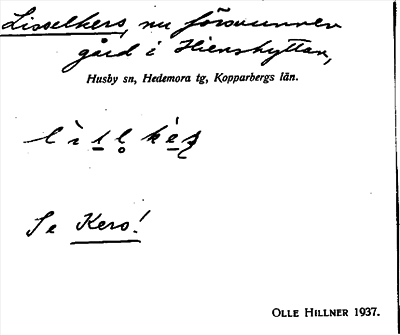 Lisselkers, nu försvunnen
gård i Hienshyttan,
Husby sn, Hedemora tg, Kopparbergs län.
Se Kers!
OLLE HILLNER 1937.